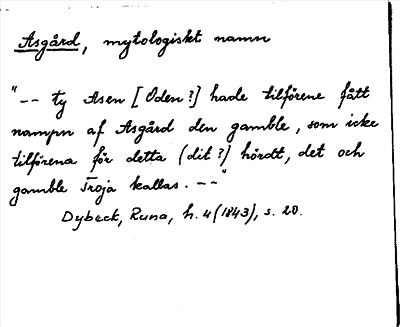 Asgård, mytologiskt namn
"-- ty Asen [Oden?] hade tilförene fått
nampn af Asgård den gamble, som icke
tilförena för detta (dit?) hördt, det och
gamble Troja kallas. --"
Dybeck, Runa, h. 4 (1843), s. 20.